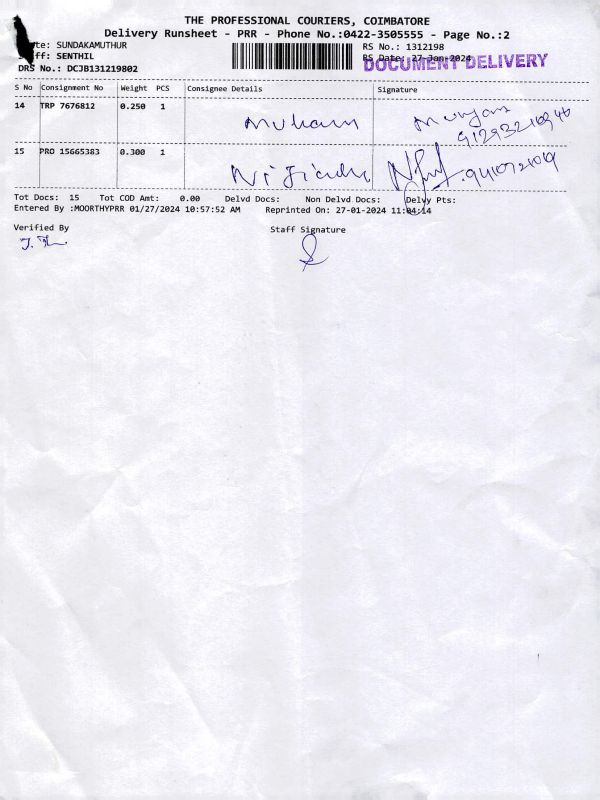 THE PROFESSIONAL COURIERS, COIMBATORE
Delivery Runsheet - PRR - Phone No.:0422-3505555 - Page No.:2
SUNDAKAMUTHUR
RS No.: 1312198
SENTHIL
RS Date: 27-Jan-2024
DOCUMENT DELIVERY
DRS No.: DCJB131219802
S No Consignment No Weight PCS Consignee Details Signature
14 TRP 7676812 0.250 1
15 PRO 15665383 0.300 1
Tot Docs: 15 Tot COD Amt: 0.00 Delvd Docs: Non Delvd Docs: Delvy Pts:
Entered By :MOORTHYPRR 01/27/2024 10:57:52 AM Reprinted On: 27-01-2024 11:04:14
Verified By Staff Signature